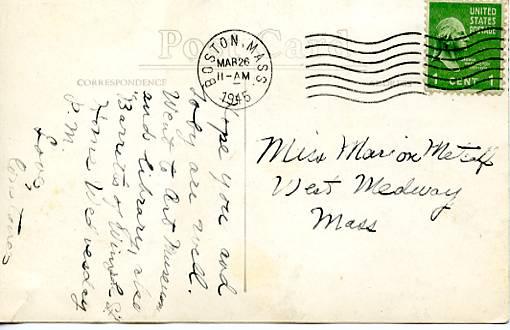 Post Card
CORRESPONDENCE
BOSTON, MASS.
MAR 26
11-AM
1945
UNITED
STATES
POSTAGE
1 CENT 1
Hope you and
Toby are well.
Went to Art Museum
and library, also
"Barretts of Wimpole St"
Home Wednesday
P.M.
Love,
Miss Marion Metcalf
West Medway
Mass